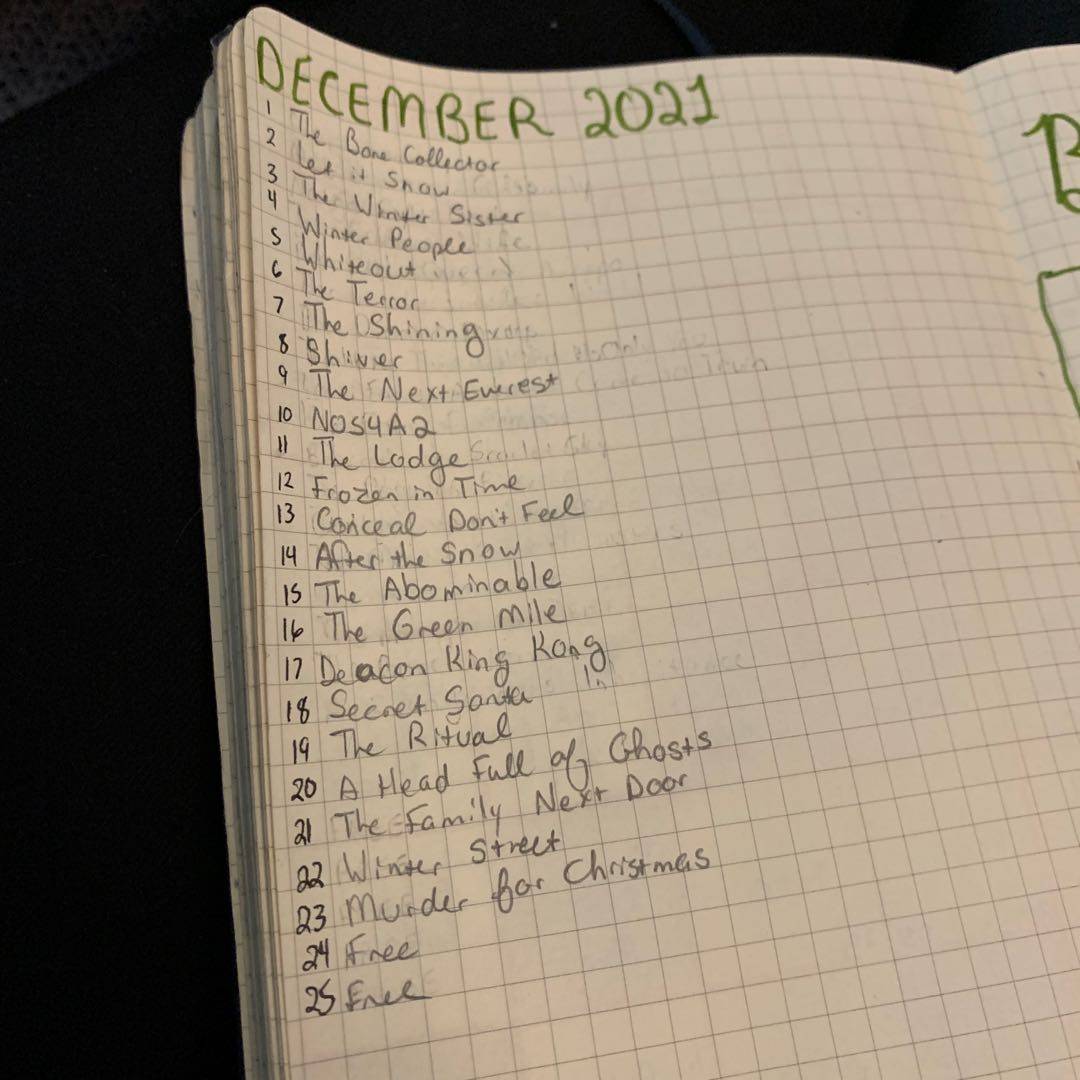 DECEMBER 2021
1 The Bone Collector
2 Let it Snow
3 The Winter Sister
4 Winter People
5 Whiteout
6 The Terror
7 The Shining
8 Shiver
9 The Next Everest
10 NOS4A2
11 The Lodge
12 Frozen in Time
13 Conceal Don't Feel
14 After the Snow
15 The Abominable
16 The Green Mile
17 Deacon King Kong
18 Secret Santa
19 The Ritual
20 A Head Full of Ghosts
21 The Family Next Door
22 Winter Street
23 Murder for Christmas
24 Free
25 Free